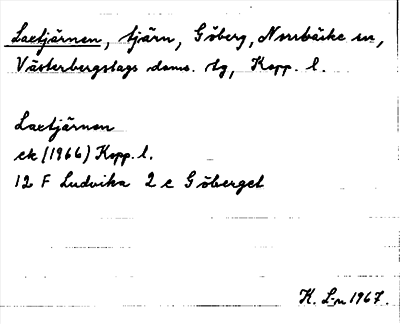 Laxtjärnen, tjärn, Göberg, Norrbärke sn,
Västerbergslags doms. tg, Kopp. l.
Laxtjärnen
ek (1966) Kopp. l.
12 F Ludvika 2 c Göberget
K. L-n 1967.